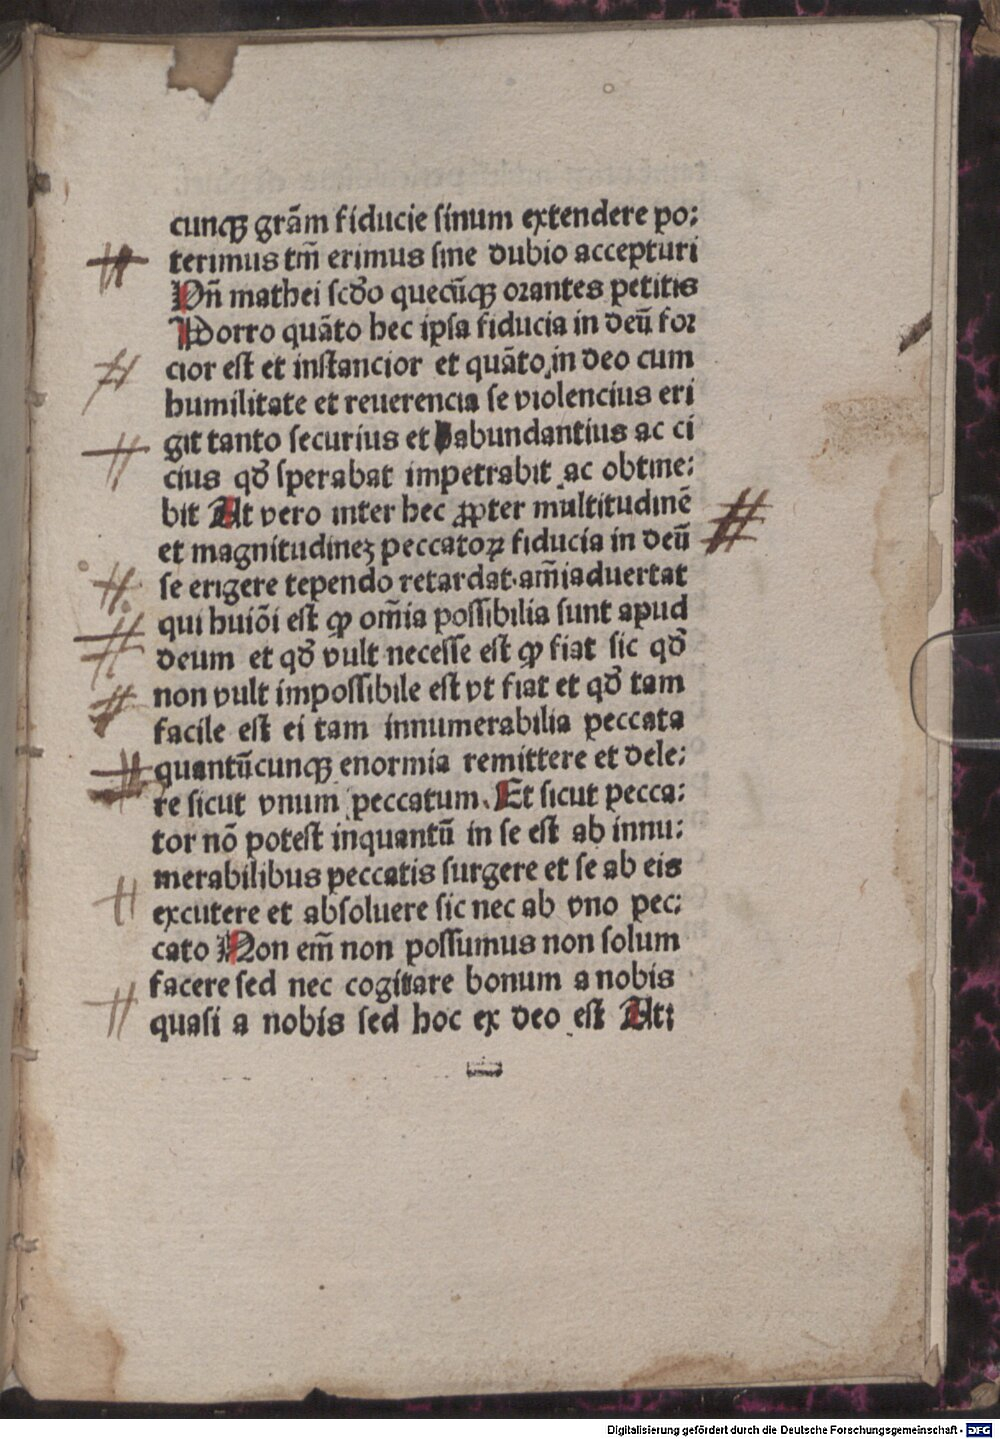 cunqꝫ grãm fiducie sinum extendere po:
terimus tm̃ erimus sine dubio accepturi
Vñ mathei scďo quecũqꝫ orantes petitis
Porro quãto hec ipsa fiducia in deũ for
cior est et instancior et quãto in deo cum
humilitate et reuerencia se violencius eri
git tanto securius et habundantius ac ci
cius qď sperabat impetrabit ac obtine:
bit At vero inter hec ꝓpter multitudinẽ
et magnitudineꝫ peccatoꝝ fiducia in deũ
se erigere tependo retardat.am̃iaduertat
qui huiõi est ꝙ om̃ia possibilia sunt apud
deum et qď vult necesse est ꝙ fiat sic qď
non vult impossibile est vt fiat et qď tam
facile est ei tam innumerabilia peccata
quantũcunqꝫ enormia remittere et dele:
re sicut vnum peccatum. Et sicut pecca:
tor nõ potest inquantũ in se est ab innu:
merabilibus peccatis surgere et se ab eis
excutere et absoluere sic nec ab vno pec:
cato Non em̃ non possumus non solum
facere sed nec cogitare bonum a nobis
quasi a nobis sed hoc ex deo est At:
Digitalisierung gefördert durch die Deutsche Forschungsgemeinschaft - DFG